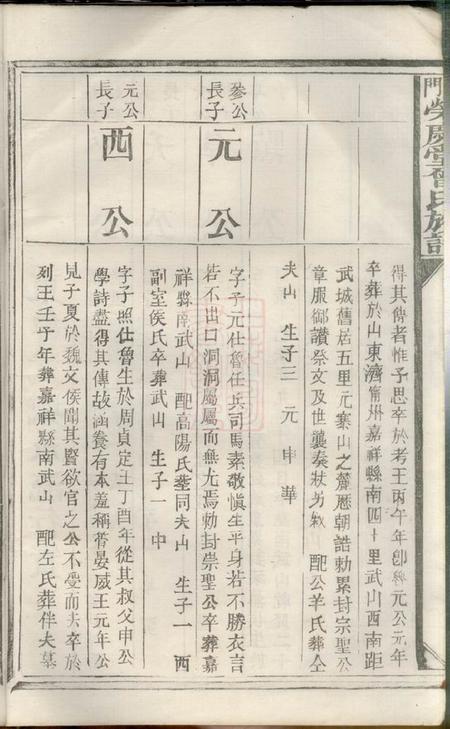 門榮慶堂曾氏族譜
得其傳者惟予思卒於考王丙午年卽魯元公元年
卒葬於山東濟甯州嘉祥縣南四十里武山西南距
武城舊居五里元寨山之麓歷朝誥勅累封宗聖公
章服御讚祭文及世襲奏狀另敘　配公羊氏葬仝
夫山　生子三　元　申　華
參公長子
元公
字子元仕魯任兵司馬素敬愼生平身若不勝衣言
若不出口洞洞屬屬而無尤焉勅封崇聖公卒葬嘉
祥縣南武山　配高陽氏葬同夫山　生子一　西
副室侯氏卒葬武山　生子一　中
元公長子
西公
字子照仕魯生於周貞定王丁酉年從其叔父申公
學詩盡得其傳故涵養有本羞稱管晏威王元年公
見子夏於魏文侯聞其賢欲官之公不受而去卒於
列王壬子年葬嘉祥縣南武山　配左氏葬伴夫墓